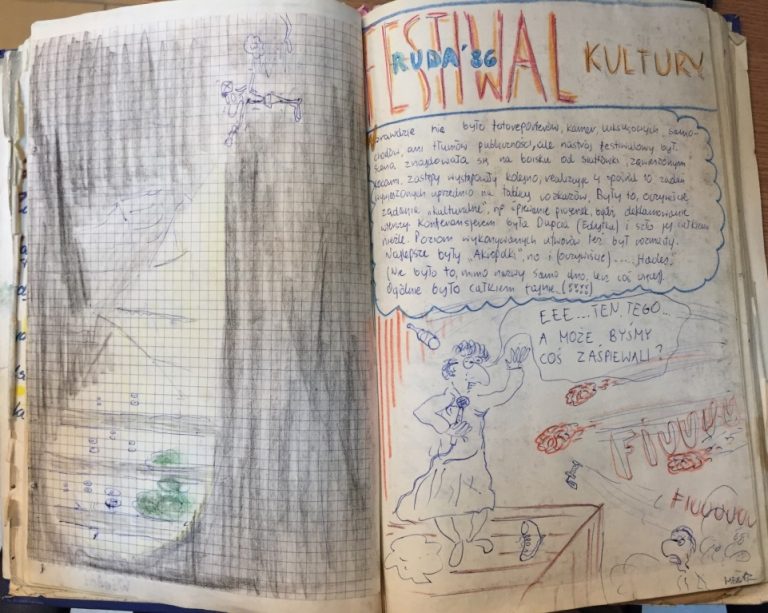 FESTIWAL KULTURY
RUDA '86
Wprawdzie nie było fotoreporterów, kamer, luksusowych samo-
chodów, ani tłumów publiczności, ale nastrój festiwalowy był.
Scena znajdowała się na boisku od siatkówki,
kocami. Zastępy występowały kolejno, realizując 4 spośród 10 zadań
uprzednio na tablicy rozkazów. Były to, oczywiście,
zadania „kulturalne", np śpiewanie piosenek, bądź deklamowanie
wierszy. Konferansjerem była Dupcia (Edytka) i szło jej całkiem
nieźle. Poziom wykonywanych utworów też był rozmaity.
Najlepsze były „Akiopdki", no i (oczywiście) .... „Hades"
(Nie było to, mimo nazwy samo dno, lecz coś
Ogólnie było całkiem fajnie (!!!!)
EEE... TEN, TEGO...
A MOŻE BYŚMY
COŚ ZAŚPIEWALI?
FIUUUU
FIUUUUUU